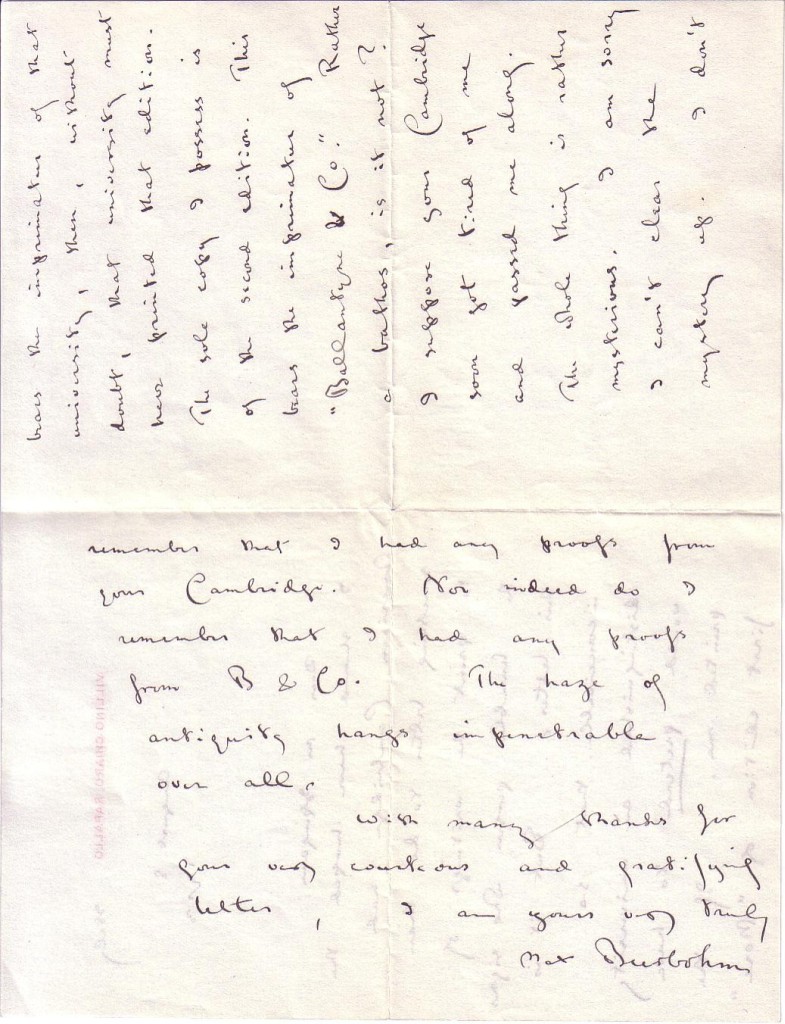 bears the imprimatur of that
university, then, without
doubt, that university must
have printed that edition.
The sole copy I possess is
of the second edition. This
bears the imprimatur of
"Ballantyne & Co." Rather
a bathos, is it not?
I suppose your Cambridge
soon got tired of me
and passed me along.
The whole thing is rather
mysterious. I am sorry
I can't clear the
mystery up. I don't
remember that I had any proofs from
your Cambridge. Nor indeed do I
remember that I had any proofs
from B & Co. The haze of
antiquity hangs impenetrable
over all.
With many thanks for
your very courteous and gratifying
letter, I am yours very truly
Max Beerbohm
VILLINO CHIARO RAPALLO